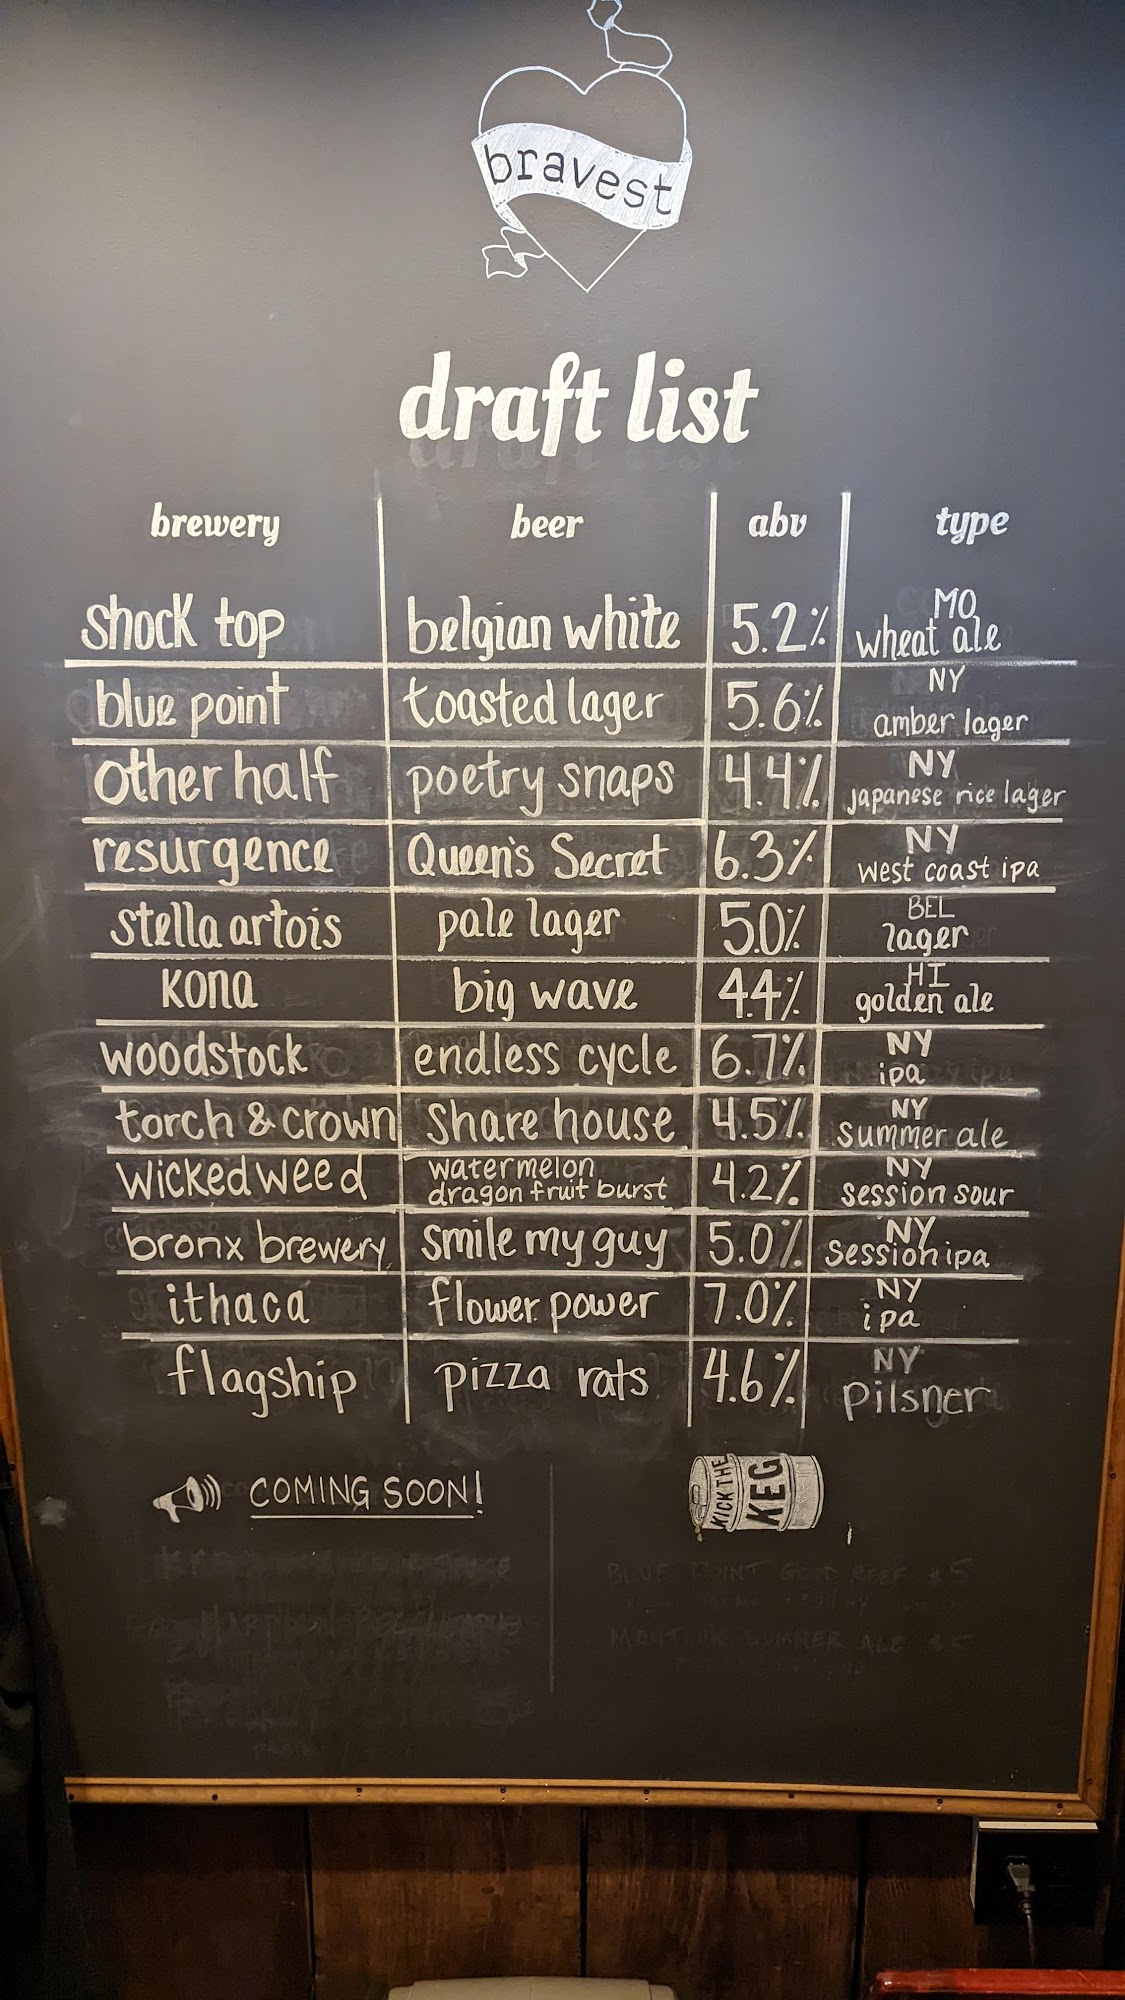 bravest
draft list
brewery beer abv type
shock top belgian white 5.2% MO
wheat ale
blue point toasted lager 5.6% NY
amber lager
other half poetry snaps 4.4% NY
japanese rice lager
resurgence Queen's Secret 6.3% NY
west coast ipa
stella artois pale lager 5.0% BEL
lager
kona big wave 4.4% HI
golden ale
woodstock endless cycle 6.7% NY
ipa
torch & crown share house 4.5% NY
summer ale
wicked weed watermelon
dragon fruit burst 4.2% NY
session sour
bronx brewery smile my guy 5.0% NY
session ipa
ithaca flower power 7.0% NY
ipa
flagship pizza rats 4.6% NY
pilsner
COMING SOON!
KICK THE
KEG
BLUE POINT GOOD REEF $5
MONTAUK SUMMER ALE $5